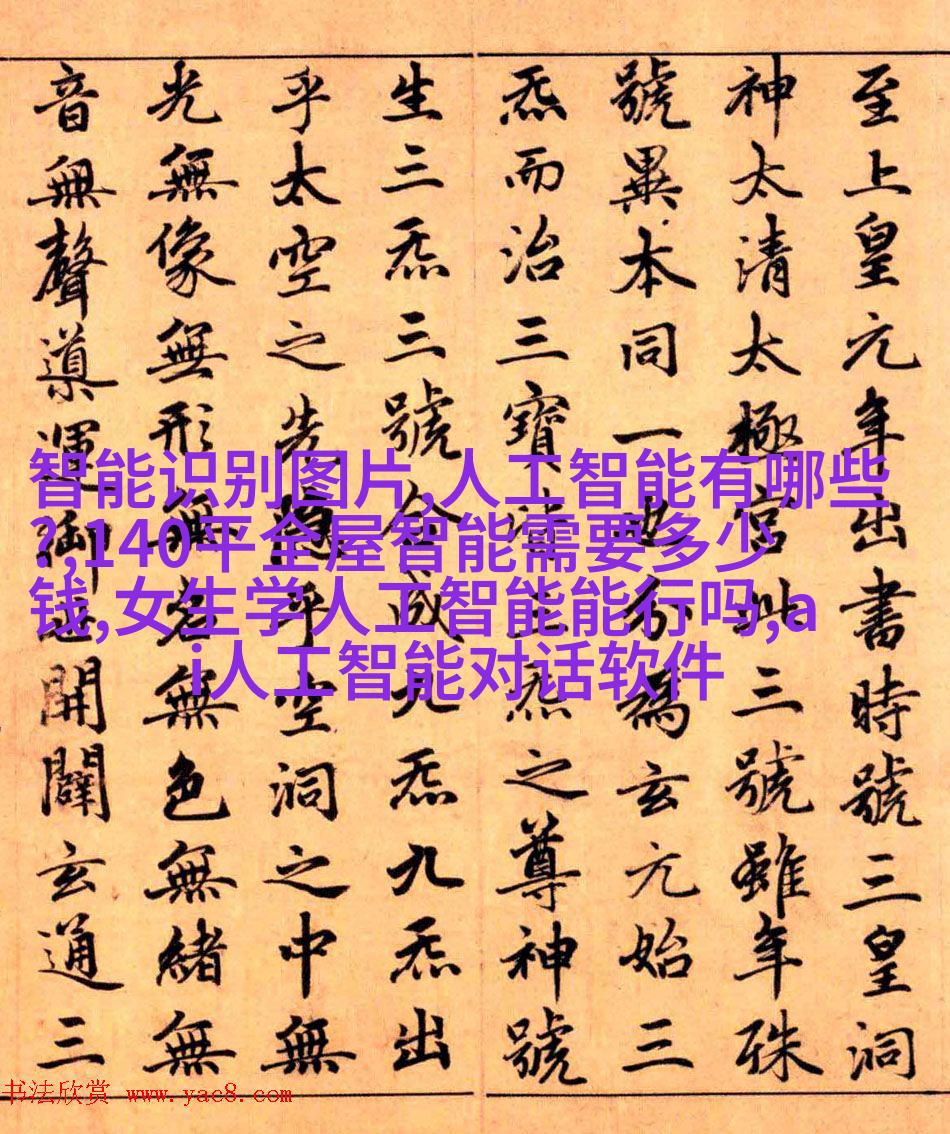 至上皇元年出書時號三皇洞
神太清太極宮此三號雖年殊
號異本同一也分為玄元始三
炁而治三寶皆三炁之尊神號
生三炁三號合成九炁九炁出
乎太空之先隱乎空洞之中無
光無像無形無名無色無緒無
音無聲導運御世開闢玄通三
智能识别图片,人工智能有哪些
?,140平全屋智能需要多少
钱,女生学人工智能能行吗,a
i人工智能对话软件
书法欣赏 www.yac8.com